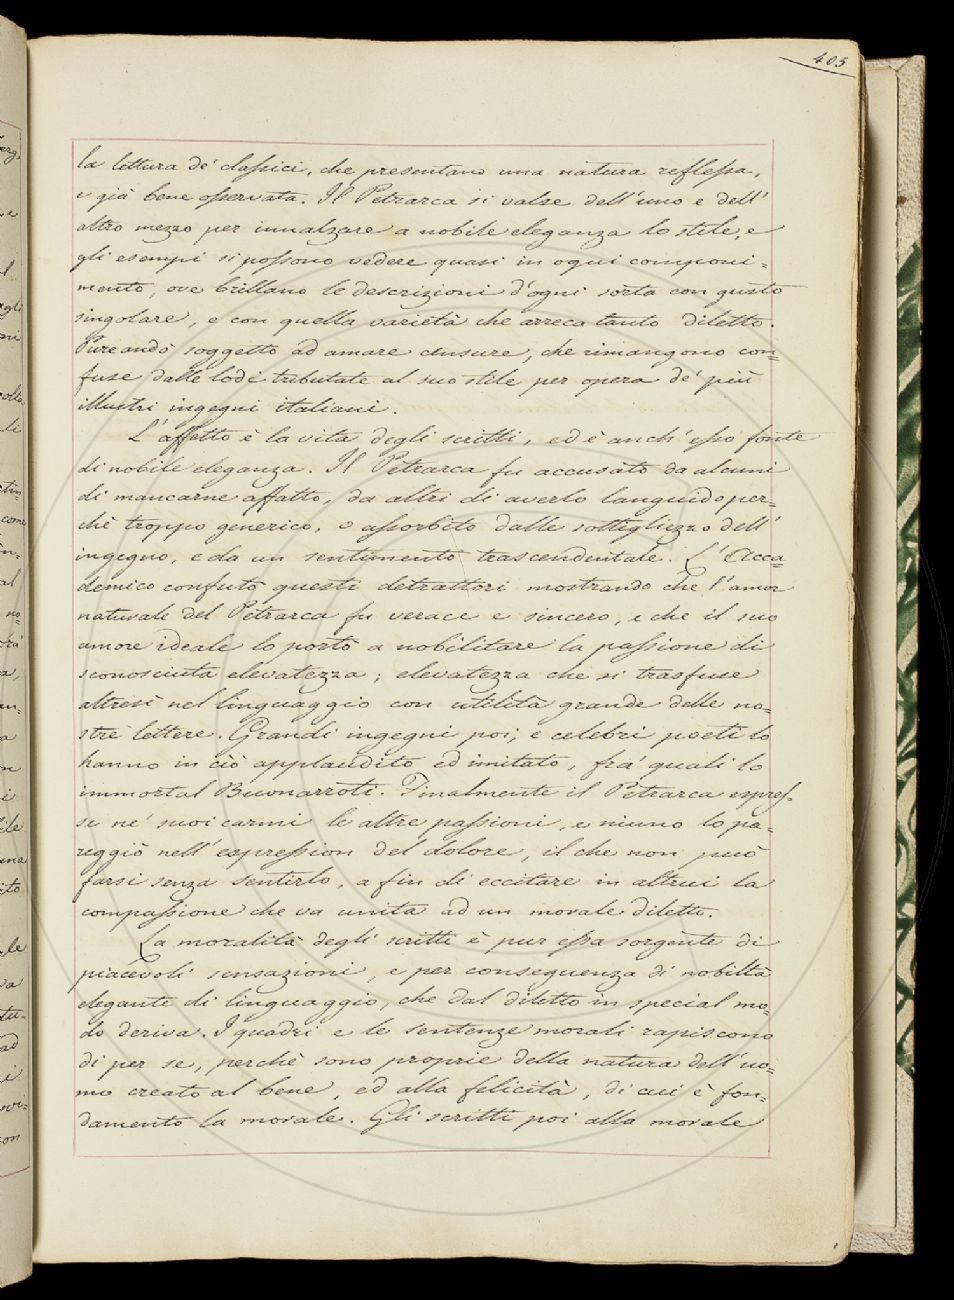 405
la lettura de' classici, che presentano una natura reflessa,
e già bene osservata. Il Petrarca si valse dell'uno e dell'
altro mezzo per innalzare a nobile eleganza lo stile, e
gli esempi si possono vedere quasi in ogni componi=
mento, ove brillano le descrizioni d'ogni sorta con gusto
singolare, e con quella varietà che arreca tanto diletto.
Pure andò soggetto ad amare censure, che rimangono con=
fuse dalle lodi tributate al suo stile per opera de' più
illustri ingegni italiani.
L'affetto è la vita degli scritti, ed è anch'esso fonte
di nobile eleganza. Il Petrarca fu accusato da alcuni
di mancarne affatto, da altri di averlo languido per=
chè troppo generico, o assorbito dalle sottigliezze dell'
ingegno, e da un sentimento trascendentale. L'Acca=
demico confutò questi detrattori mostrando che l'amor
naturale del Petrarca fu verace e sincero, e che il suo
amore ideale lo portò a nobilitare la passione di
sconosciuta elevatezza; elevatezza che si trasfuse
altresì nel linguaggio con utilità grande delle no=
stre lettere. Grandi ingegni poi, e celebri poeti lo
hanno in ciò applaudito ed imitato, fra' quali lo
immortal Buonarroti. Finalmente il Petrarca espres=
se ne' suoi carmi le altre passioni, e niuno lo pa=
reggiò nell'espression del dolore, il che non può
farsi senza sentirlo, a fin di eccitare in altrui la
compassione che va unita ad un morale diletto.
La moralità degli scritti è pur essa sorgente di
piacevoli sensazioni, e per conseguenza di nobiltà
elegante di linguaggio, che dal diletto in special mo=
do deriva. I quadri e le sentenze morali rapiscono
di per se, perchè sono proprie della natura dell'uo=
mo creato al bene, ed alla felicità, di cui è fon=
damento la morale. Gli scritti poi alla morale